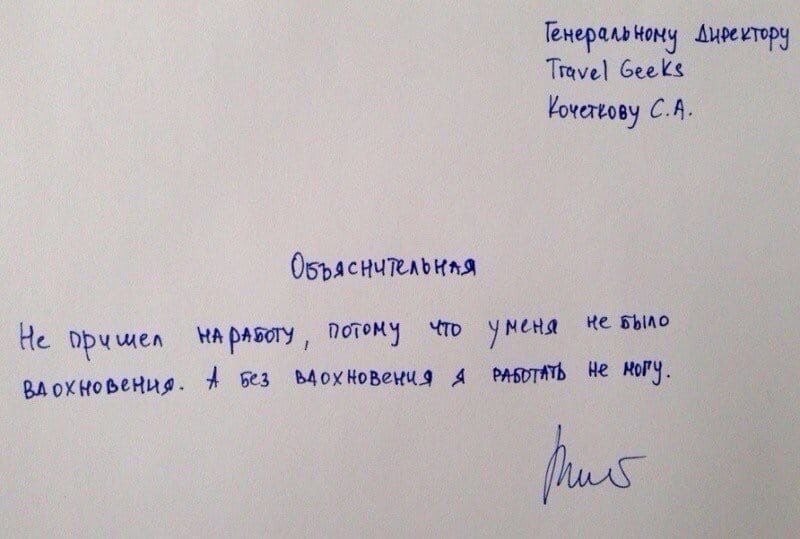 Генеральному Директору
Travel Geeks
Кочеткову С.А.
Объяснительная
Не пришел на работу, потому что у меня не было
вдохновения. А без вдохновения я работать не могу.